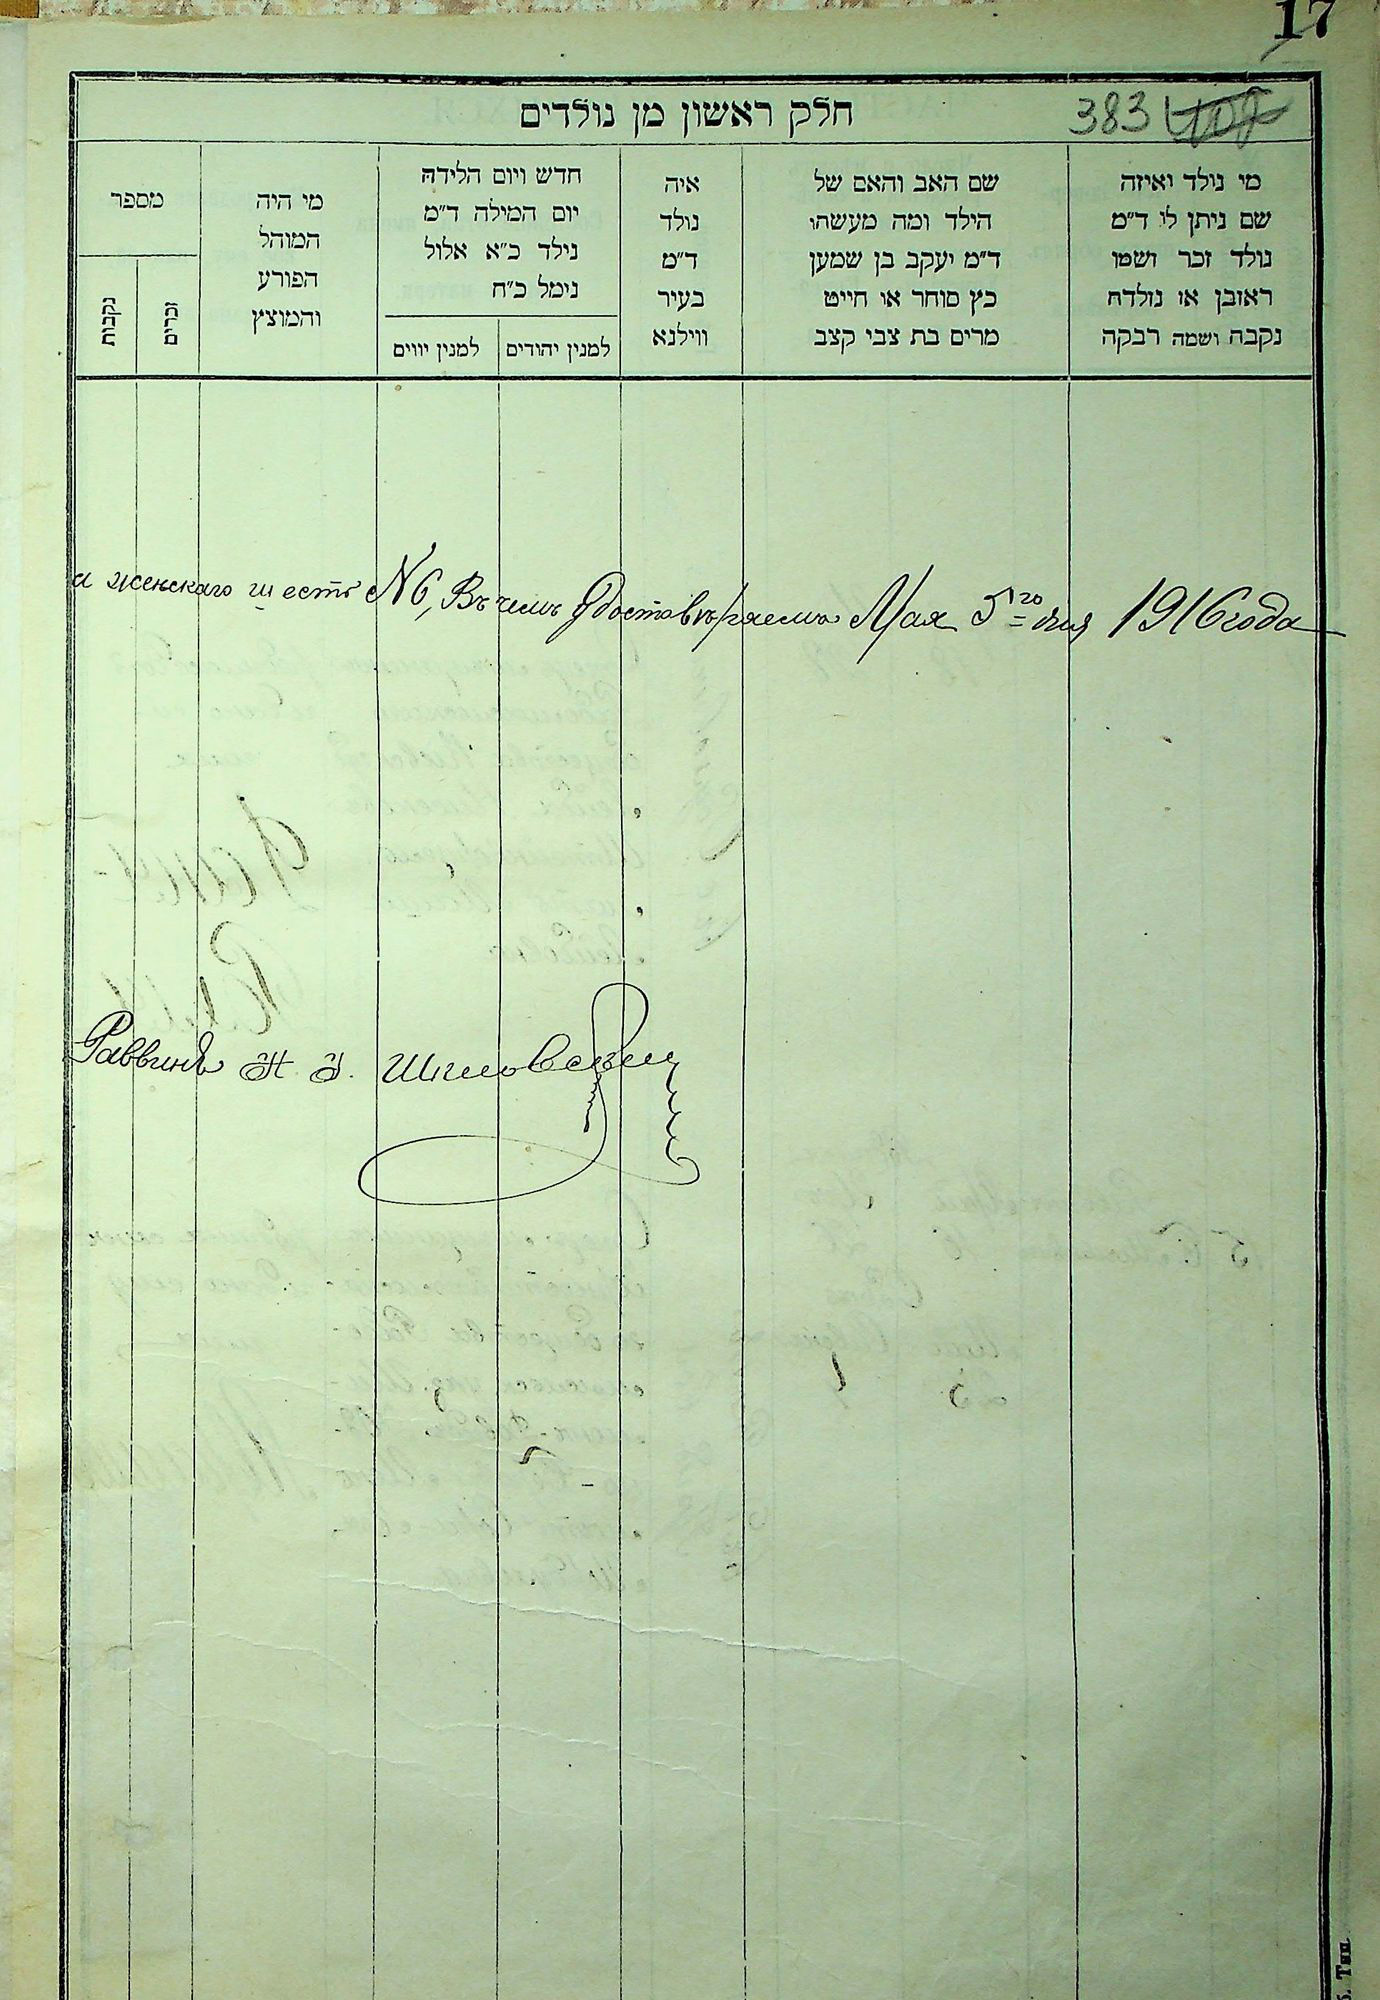 17
חלק ראשון מן נולדים
383
מי נולד ואיזה
שם ניתן לו ד"מ
נולד זכר ושמו
ראובן או נולדה
נקבה ושמה רבקה
שם האב והאם של
הילד ומה מעשהו
ד"מ יעקב בן שמעון
כץ סוחר או חייט
מרים בת צבי קצב
איה
נולד
ד"מ
בעיר
ווילנא
חדש ויום הלידה
יום המילה ד"מ
נילד כ"א אלול
נימל כ"ח
למנין יהודים
למנין יווים
מי היה
המוהל
הפורע
והמוצץ
מספר
זכרים
נקבות
и женскаго шесть №6, Въ чемъ Удостовѣряемъ Мая 5го дня 1916 года
Раввинъ